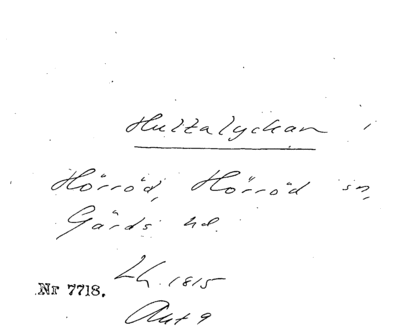 Hultalyckan i
Hörröd, Hörröd sn,
Gärds hd.
Lh. 1815
Nr 7718.
Akt 9